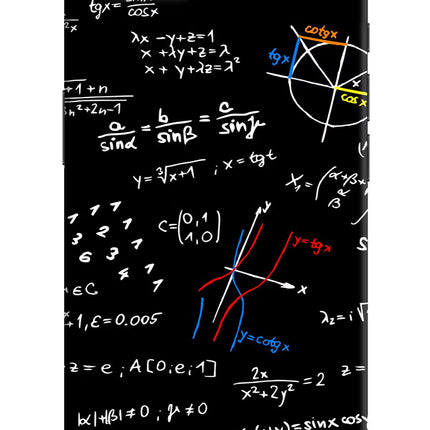 tgx = sinx/cosx
²x
λx - y + z = 1
x + λy + z = λ
x + y + λz = λ²
cotgx
tgx
x
cosx
+1+n
n²+2n-1
a/sinα = b/sinβ = c/sinγ
y = ³√x+1 ; x = tgt
X₁ = (α+β+
α
β
1 1 1
3 2 1
6 3 1
4 1
1
C = (0,1
1,0)
y
y=tgx
x
y=cotgx
εC
+1, ε = 0.005
λ₂ = i√
z = e ; A[0;e;1]
2x/x²+2y² = 2
z =
|α|+|β| ≠ 0 ; γ ≠ 0
= sinx cosy